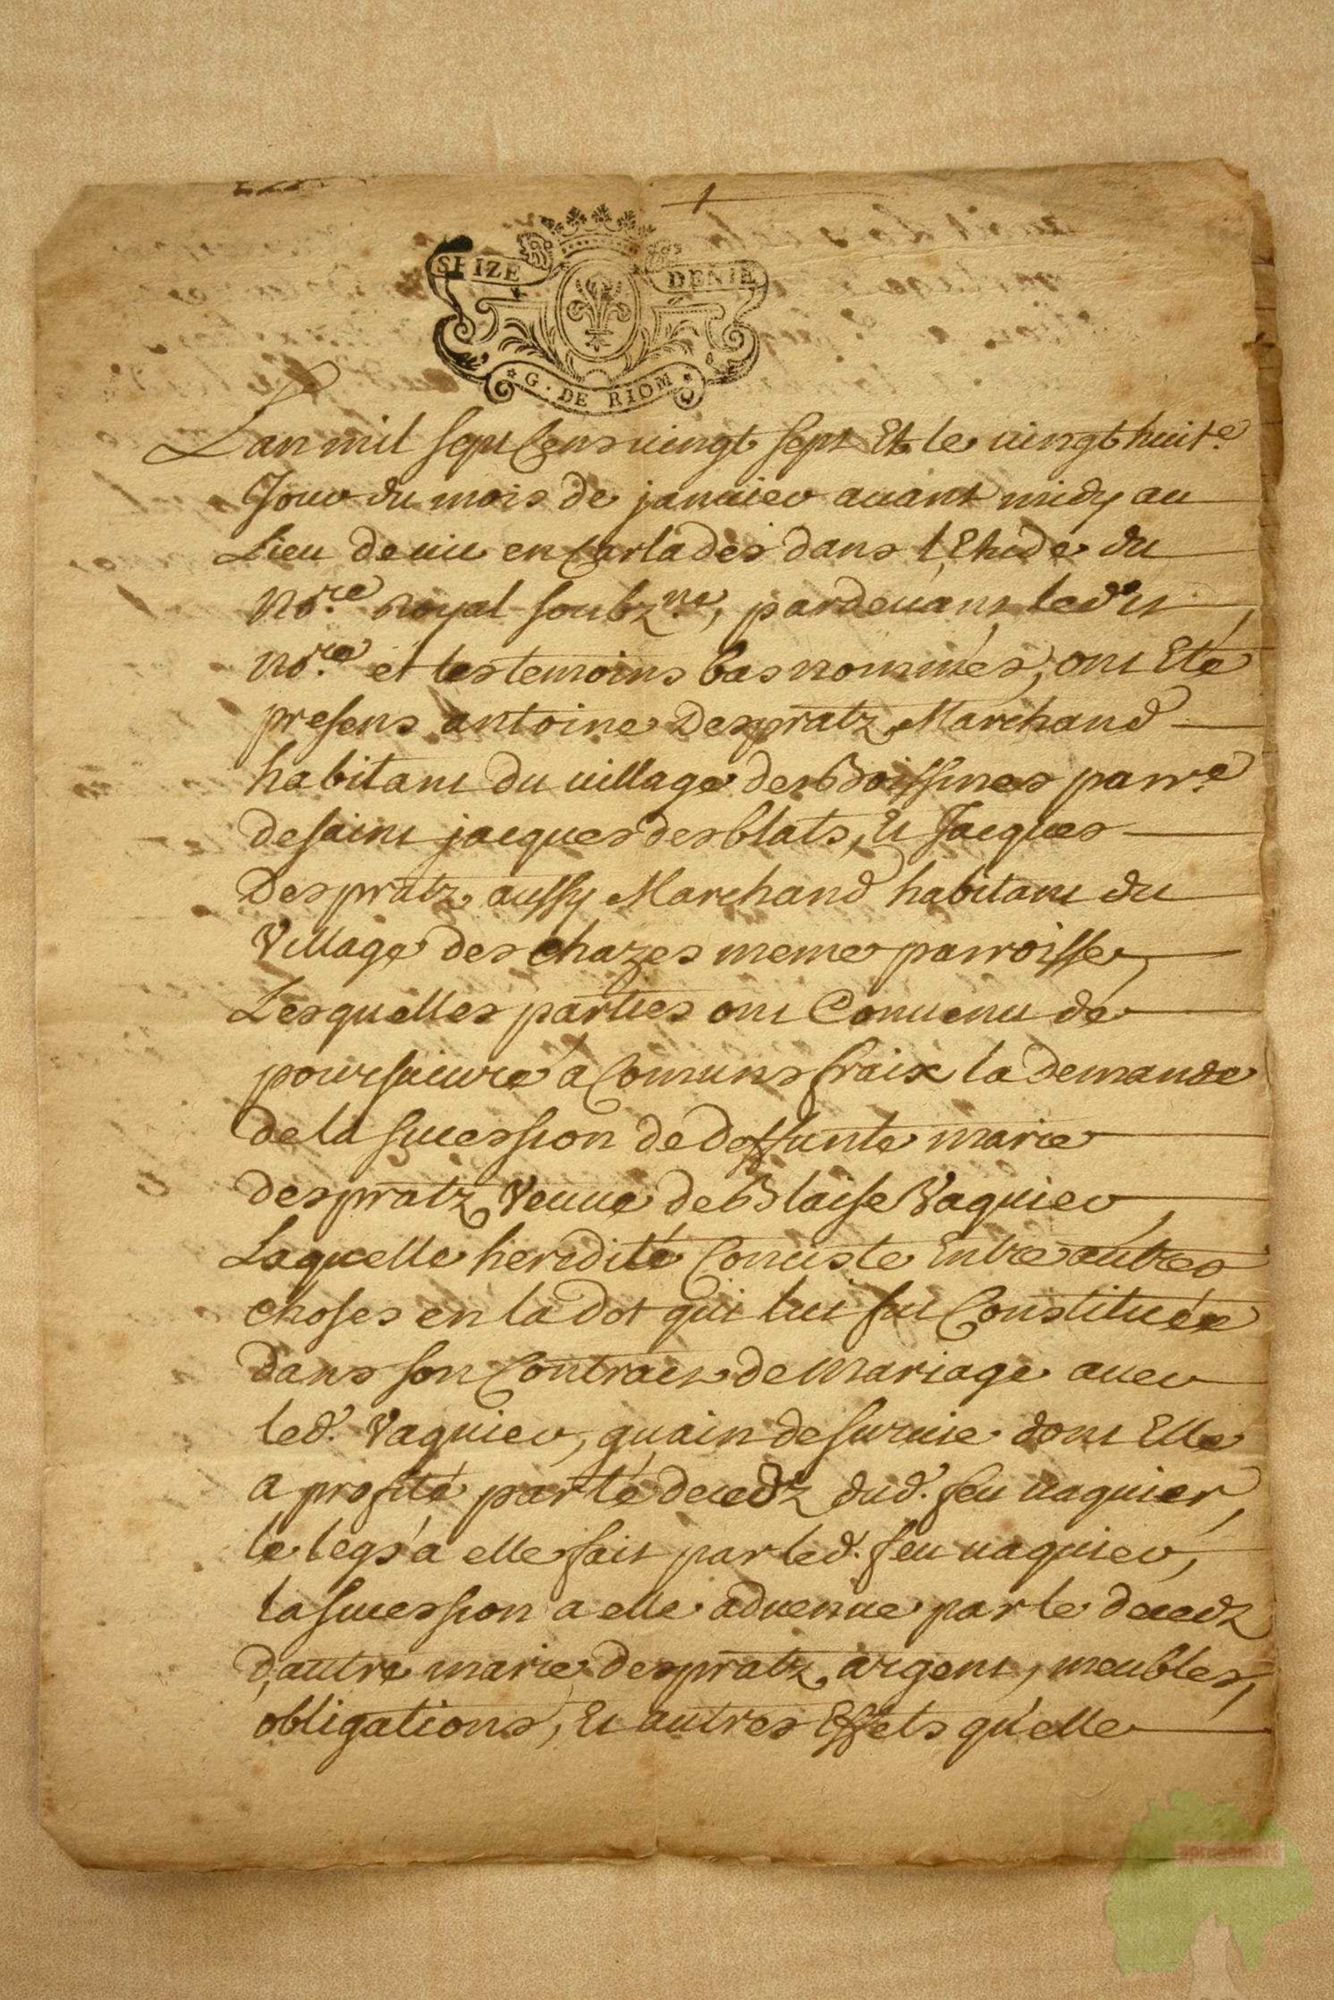 1
SEIZE DENIE
G. DE RIOM
Lan mil sept Cens vingt sept Et le vingt huit.e
Jour du mois de janvier avant midy au
Lieu de vic en Carlades dans l'Etude du
No.re royal soubz.né, pardevant led.it
No.re et les temoins bas nommés, ont Eté
presens antoine Despratz Marchand
habitant du village des Boissines parr.e
de saint jacques des blats, Et Jacques
Despratz aussy Marchand habitant du
Village des Chazes meme parroisse,
Lesquelles parties ont Convenu de
poursuivre à Comuns fraix la demande
de la sucession de deffunte marie
despratz Veuve de Blaise Vaquier,
Laquelle heredité Conciste Entre autres
choses en la dot qui lui fut Constituée
dans son Contract de Mariage avec
led. Vaquier, guain de survie dont Elle
a profité par le decedz dud. feu vaquier,
le legs à elle fait par led. feu vaquier,
la sucession a elle advenue par le decedz
d'autre marie despratz argent, meubles,
obligations, Et autres Effets qu'elle